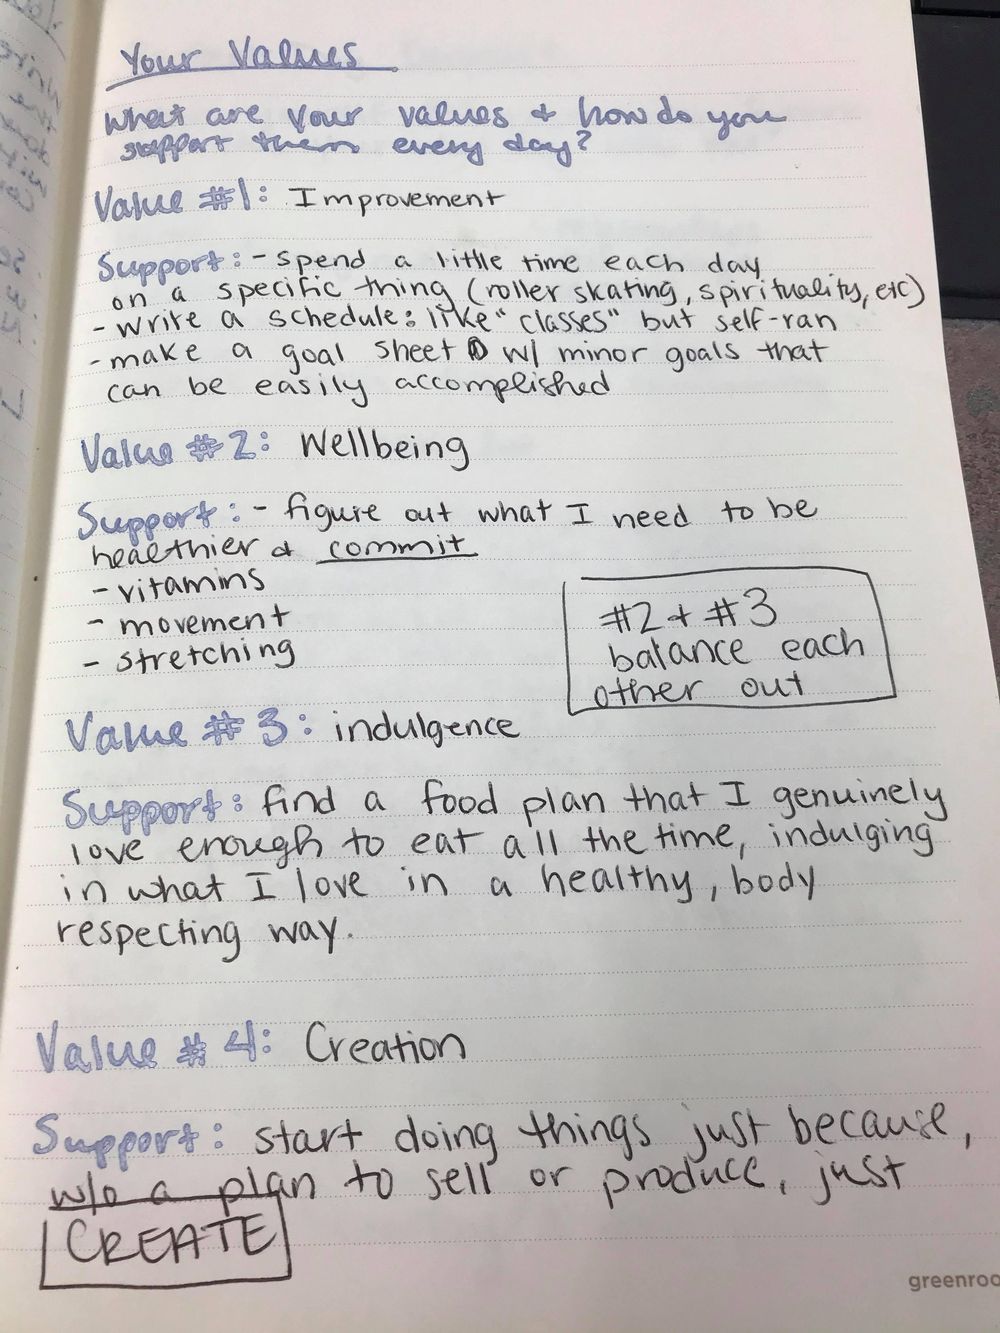 Your Values
What are your values & how do you
support them every day?
Value #1: Improvement
Support: - spend a little time each day
on a specific thing (roller skating, spirituality, etc)
- write a schedule: like "classes" but self-ran
- make a goal sheet w/ minor goals that
can be easily accomplished
Value #2: Wellbeing
Support: - figure out what I need to be
healthier & commit
- vitamins
- movement
- stretching
#2 & #3
balance each
other out
Value #3: indulgence
Support: find a food plan that I genuinely
love enough to eat all the time, indulging
in what I love in a healthy, body
respecting way.
Value #4: Creation
Support: start doing things just because,
w/o a plan to sell or produce, just
CREATE
greenroo